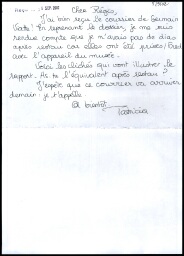 Cher Régis,
J'ai bien reçu le courrier de Germain
Viatte. En reprenant le dossier, je me suis
rendue compte que je n'avais pas de dias
après restau car elles ont été prises
avec l'appareil du musée.
Voici les clichés qui vont illustrer le
rapport. As tu l'équivalent après restau ?
J'espère que ce courrier va arriver
demain. je t'appelle
A bientôt
Patricia